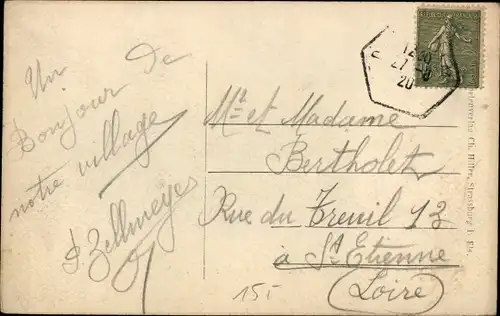 Un Bonjour de
notre village
J. Zellmeyer
Mr et Madame
Bertholet
Rue du Treuil 13
à St Etienne
(Loire)
155
12 30
27 - 8
20
Ch. Hiller, Strassburg i. Els.